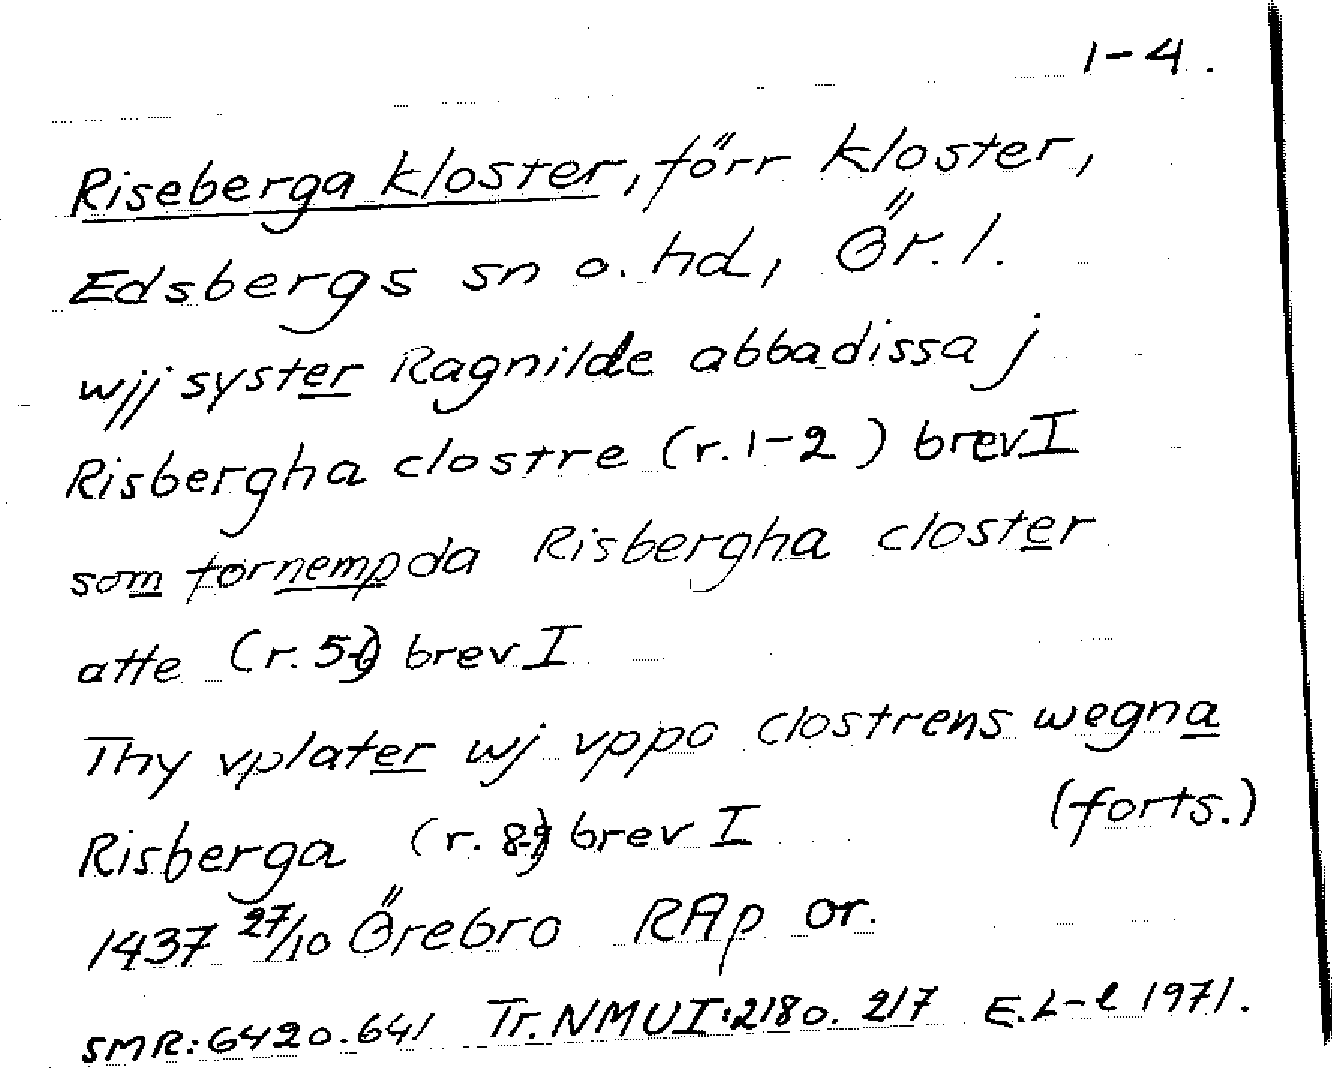 1-4.
Riseberga kloster, förr kloster,
Edsbergs sn o. hd, Ör. l.
wjj syster Ragnilde abbadissa j
Risbergha clostre (r. 1-2) brev I
som fornempda Risbergha closter
atte (r. 5-6) brev I
Thy vplater wj vppo clostrens wegna
Risberga (r. 8-9) brev I (forts.)
1437 27/10 Örebro RAp or.
SMR: 642 o. 641 Tr. NMU I: 218 o. 217 E.L-l 1971.